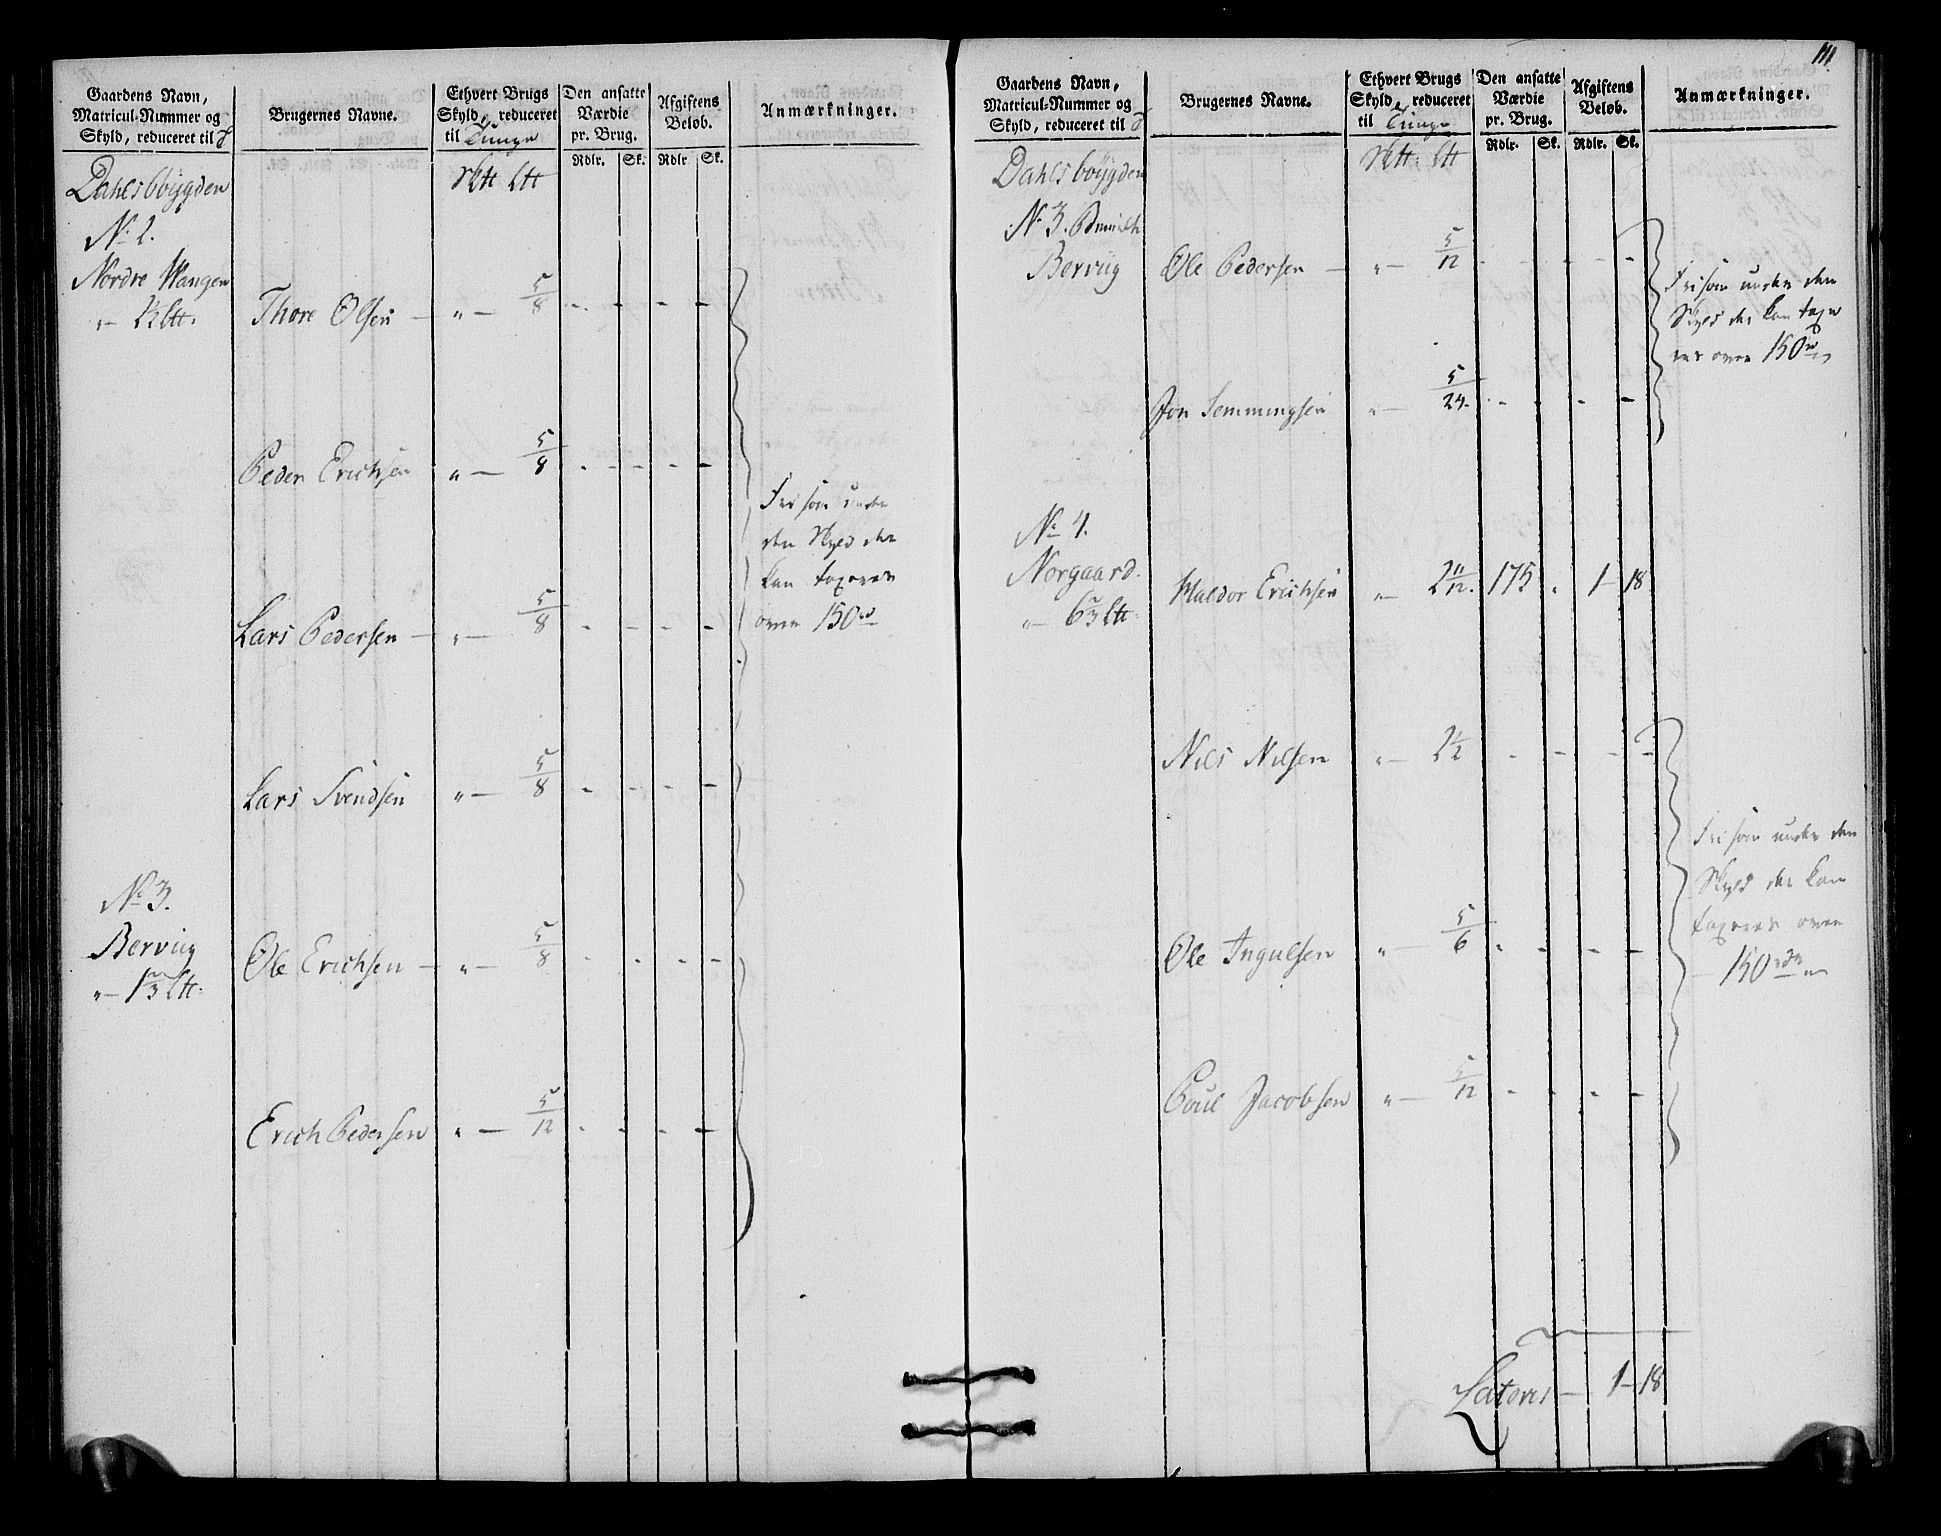 Gaardens Navn,
Matricul-Nummer og
Skyld, reduceret til
Brugernes Navne.
Ethvert Brugs
Skyld, reduceret
til Tunge
Den ansatte
Værdie
pr. Brug.
Rdlr. Sk.
Afgiftens
Beløb.
Rdlr Sk.
Anmærkninger.
Dahlsbøygden
No 2.
Nordre Wangen
Thore Olsen " 5/8 - - - -
Peder Erichsen " 5/8 - - - -
Fri som under
den Skyld der
kan taxeres
over 150 rd
Lars Pedersen " 5/8 - - - -
Lars Svendsen " 5/8 - - - -
No 3.
Bervüg
Ole Erichsen " 5/8 - - - -
Erich Pedersen " 5/12 - - - -
111
Gaardens Navn,
Matricul-Nummer og
Skyld, reduceret til
Brugernes Navne.
Ethvert Brugs
Skyld, reduceret
til Tunge
Den ansatte
Værdie
pr. Brug.
Rdlr. Sk.
Afgiftens
Beløb.
Rdlr. Sk.
Anmærkninger.
Dahlsbøygden
No 3.
Bervüg Ole Pedersen " 5/12 - - - -
Fri som under den
Skyld der kan taxe
res over 150 rd
Jon Semmingsen " 5/24 - - - -
No 4.
Norgaard
Haldor Erichsen " 2 11/12 175 " 1 - 18
Nils Nilsen " 2 1/2 - - - -
Fri som under den
Skyld der kan
taxeres over
150 rdr
Ole Ingulsen " 5/6 - - - -
Poul Jacobsen " 5/12 - - - -
Lateris 1 - 18